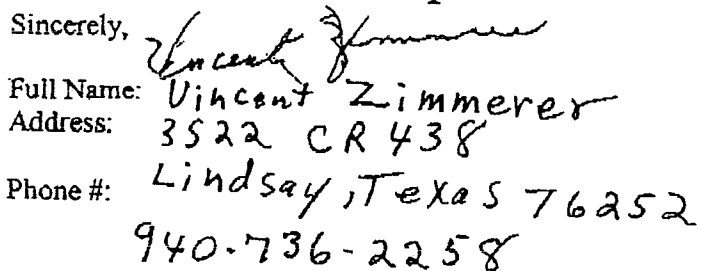 Sincerely,
Vincent Zimmerer
Full Name: Vincent Zimmerer
Address: 3522 CR 438
Lindsay, Texas 76252
Phone #:
940-736-2258